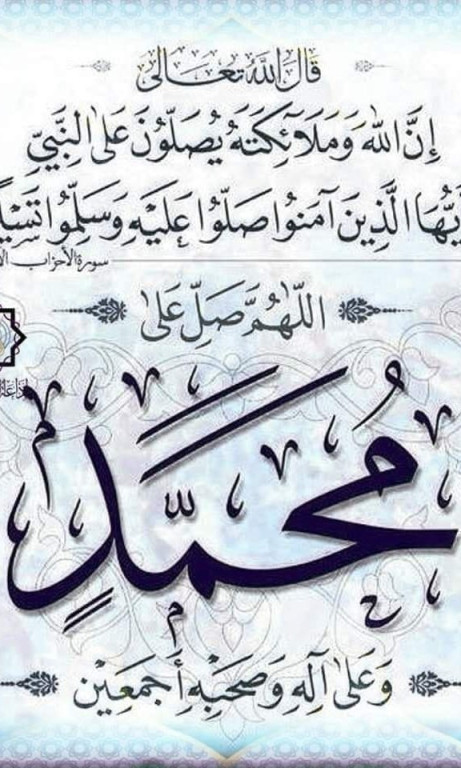 قال الله تعالى
إِنَّ اللَّهَ وَمَلَائِكَتَهُ يُصَلُّونَ عَلَى النَّبِيِّ
يَا أَيُّهَا الَّذِينَ آمَنُوا صَلُّوا عَلَيْهِ وَسَلِّمُوا تَسْلِي
سورة الأحزاب
اللَّهُمَّ صَلِّ عَلَى
مُحَمَّدٍ
وَعَلَى آلِهِ وَصَحْبِهِ أَجْمَعِين